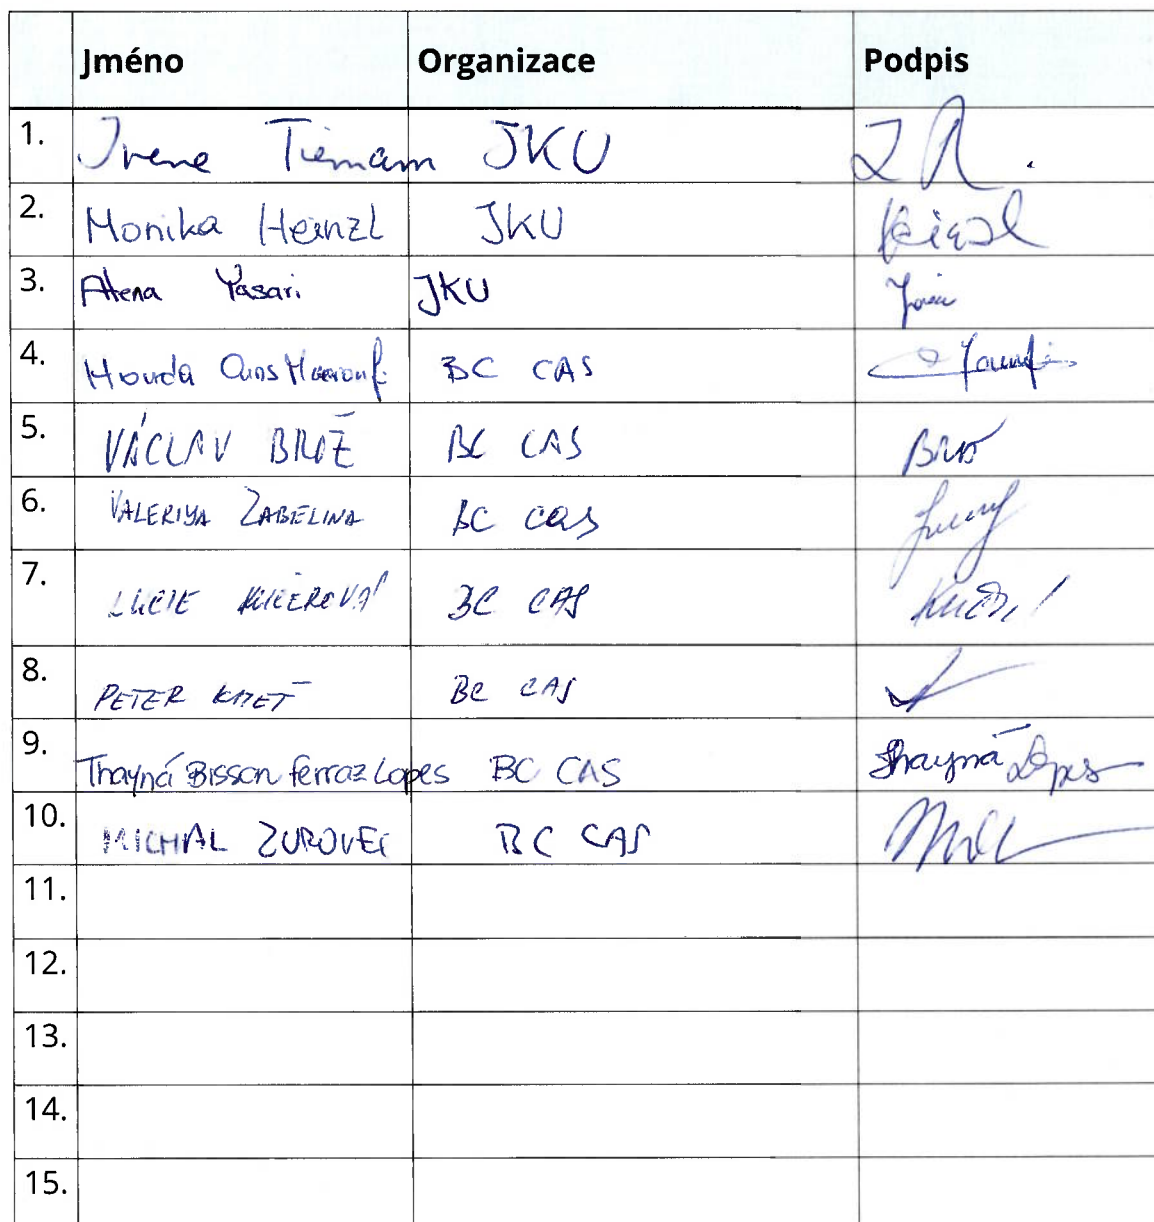 Jméno Organizace Podpis
1. Irene Tiemann JKU
2. Monika Heinzl JKU Heinzl
3. Atena Yasari JKU
4. Houda Ouns Maaroufi BC CAS
5. VÁCLAV BROŽ BC CAS BROŽ
6. VALERIYA ZABELINA BC CAS
7. LUCIE KUČEROVÁ BC CAS
8. PETER KMEŤ BC CAS
9. Thayná Bisson Ferraz Lopes BC CAS Thayná Lopes
10. MICHAL ZUROVEC BC CAS
11.
12.
13.
14.
15.